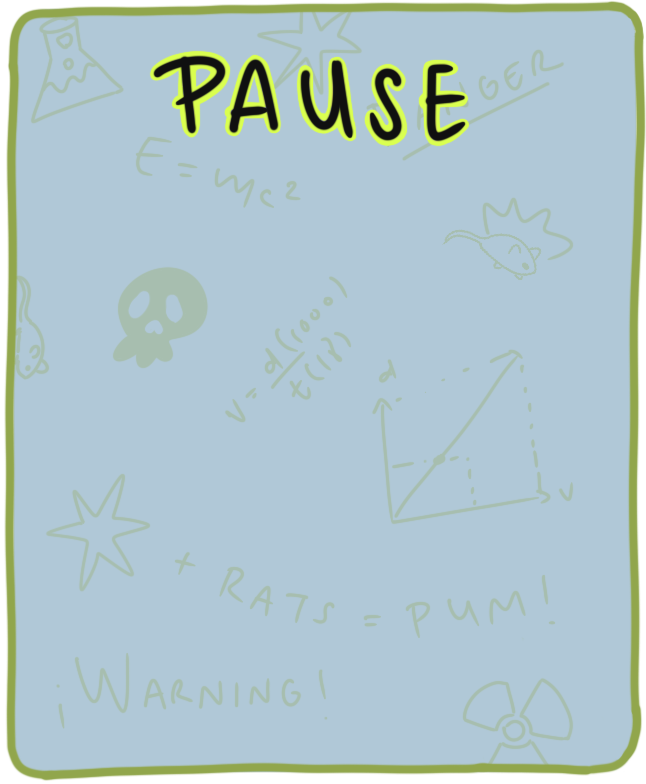 PAUSE
E = mc²
v = d(1000) / t(18)
d
v
+ RATS = PUM!
¡WARNING!